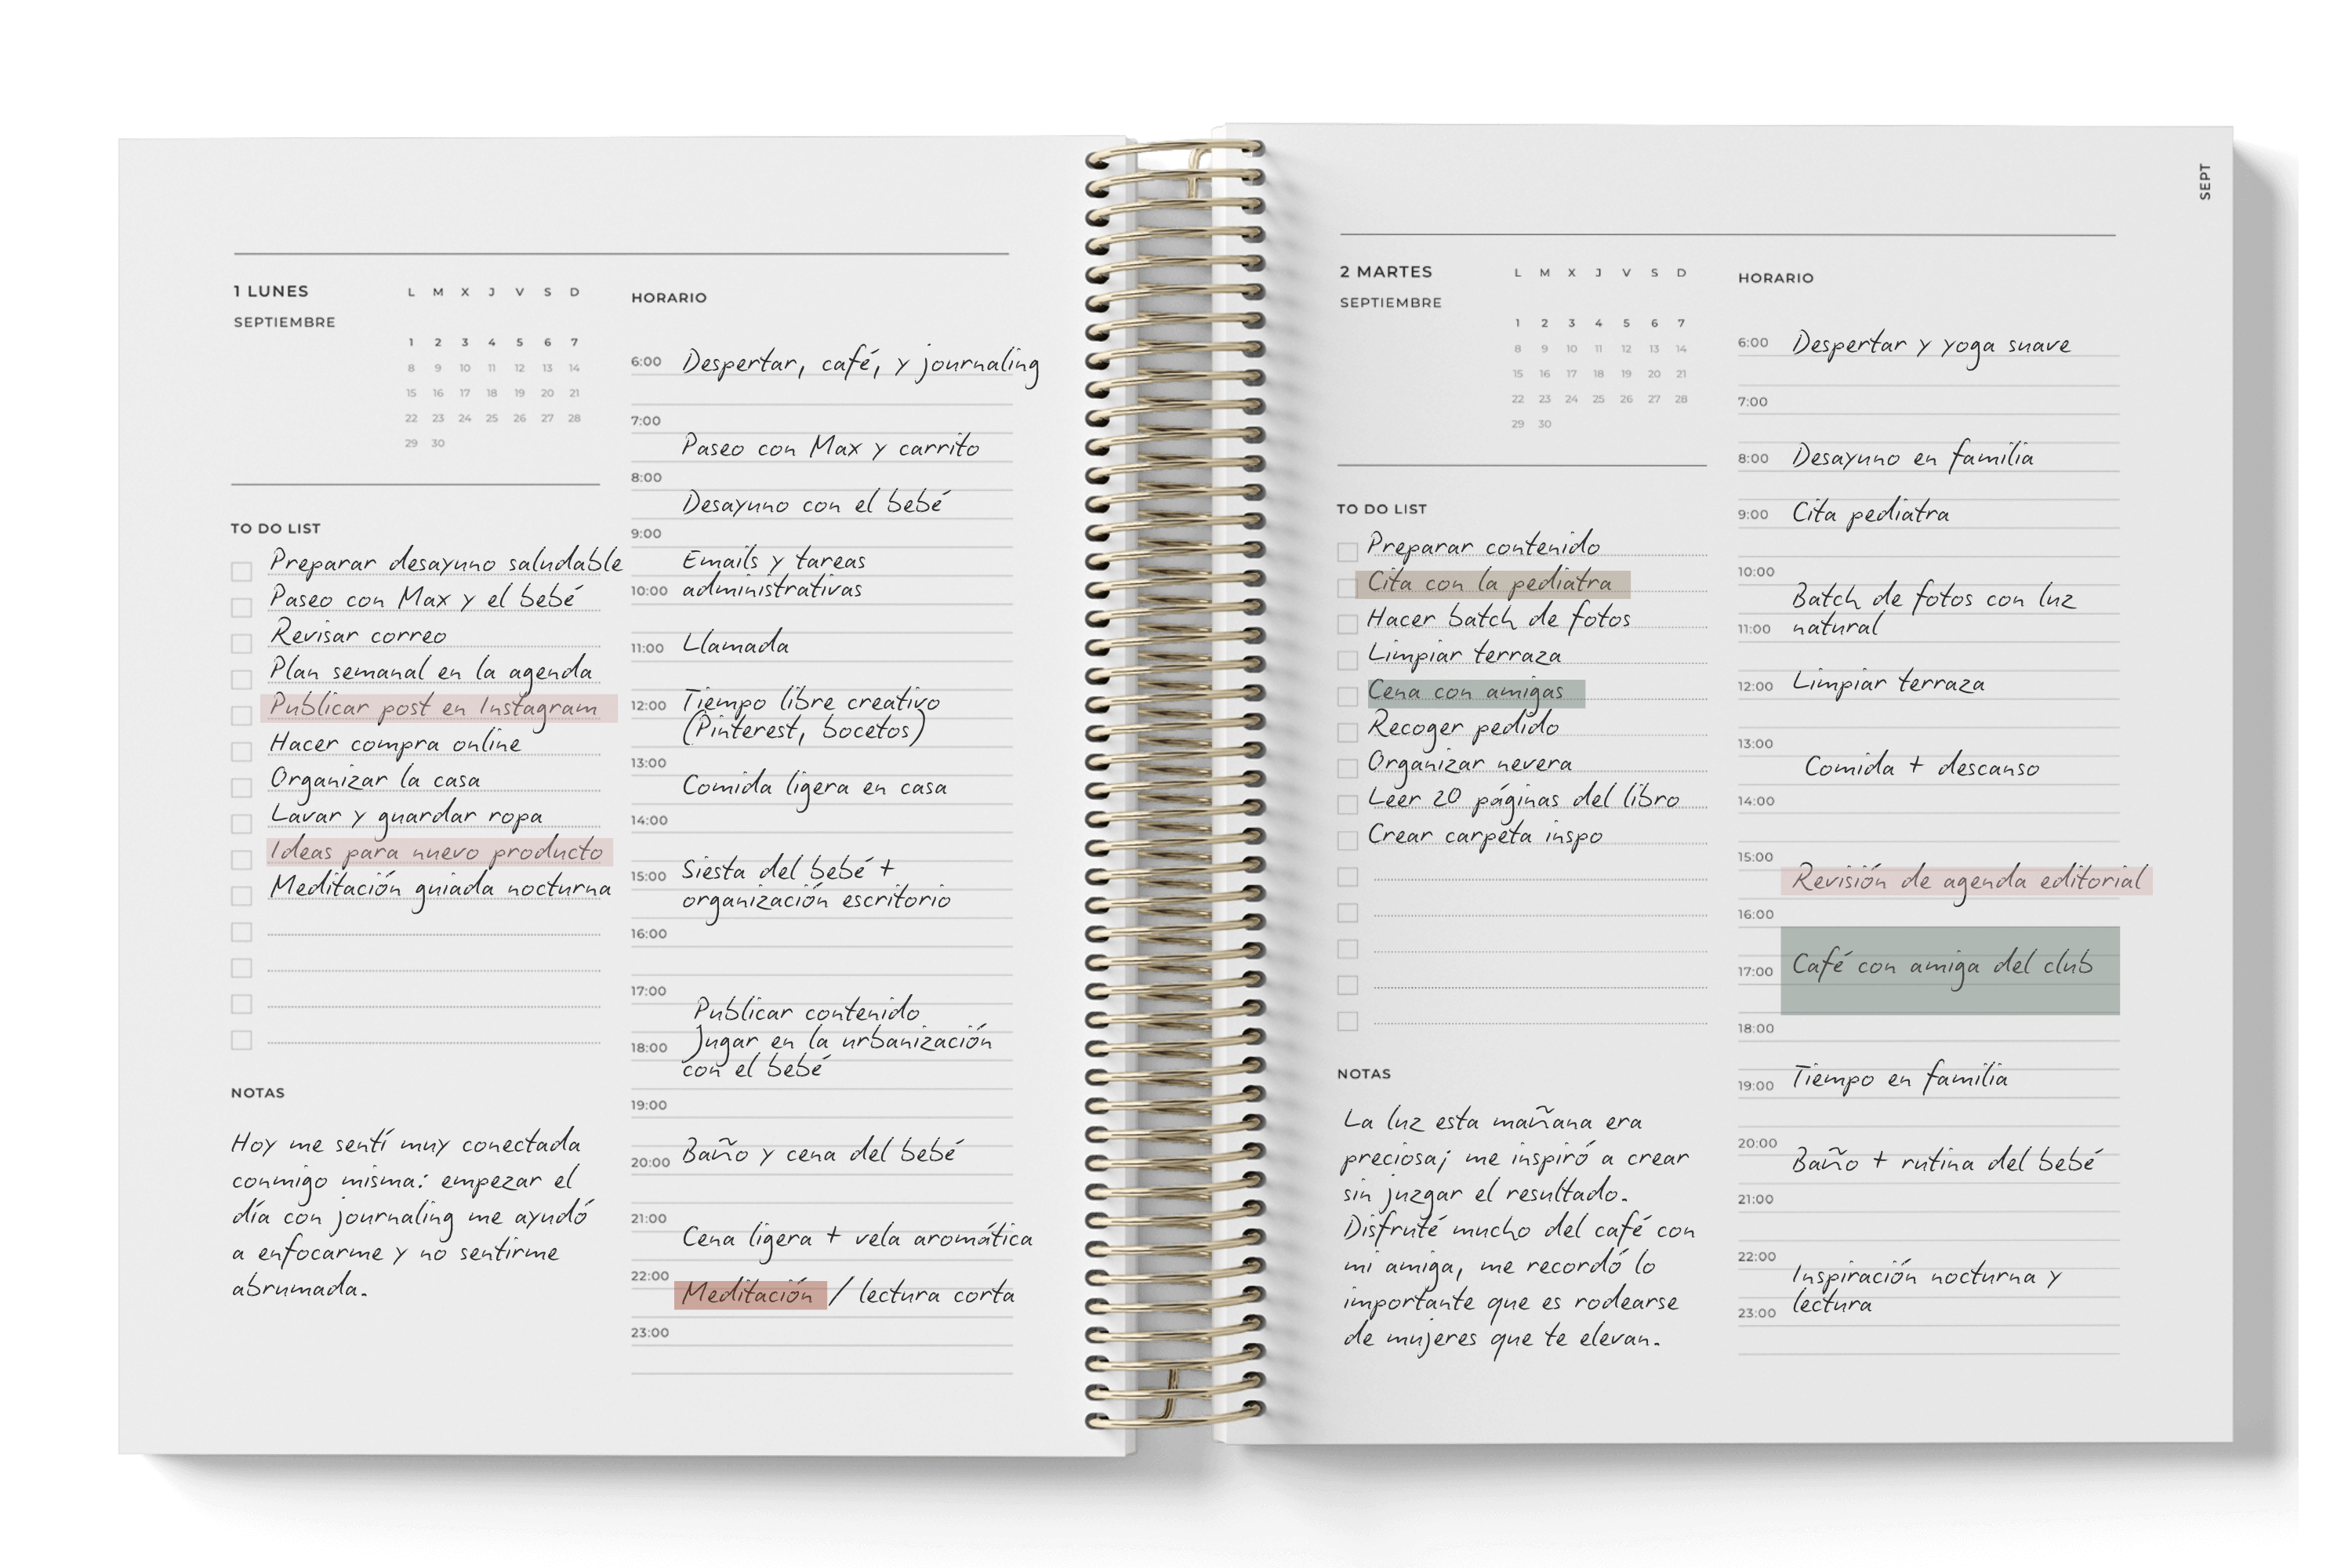 1 LUNES
SEPTIEMBRE
L M X J V S D
1 2 3 4 5 6 7
8 9 10 11 12 13 14
15 16 17 18 19 20 21
22 23 24 25 26 27 28
29 30
TO DO LIST
Preparar desayuno saludable
Paseo con Max y el bebé
Revisar correo
Plan semanal en la agenda
Publicar post en Instagram
Hacer compra online
Organizar la casa
Lavar y guardar ropa
Ideas para nuevo producto
Meditación guiada nocturna
NOTAS
Hoy me sentí muy conectada
conmigo misma: empezar el
día con journaling me ayudó
a enfocarme y no sentirme
abrumada.
HORARIO
6:00 Despertar, café, y journaling
7:00
Paseo con Max y carrito
8:00
Desayuno con el bebé
9:00
Emails y tareas
10:00 administrativas
11:00 Llamada
12:00 Tiempo libre creativo
(Pinterest, bocetos)
13:00
Comida ligera en casa
14:00
15:00 Siesta del bebé +
organización escritorio
16:00
17:00
Publicar contenido
18:00 Jugar en la urbanización
con el bebé
19:00
20:00 Baño y cena del bebé
21:00
Cena ligera + vela aromática
22:00
Meditación / lectura corta
23:00
SEPT
2 MARTES
SEPTIEMBRE
L M X J V S D
1 2 3 4 5 6 7
8 9 10 11 12 13 14
15 16 17 18 19 20 21
22 23 24 25 26 27 28
29 30
TO DO LIST
Preparar contenido
Cita con la pediatra
Hacer batch de fotos
Limpiar terraza
Cena con amigas
Recoger pedido
Organizar nevera
Leer 20 páginas del libro
Crear carpeta inspo
NOTAS
La luz esta mañana era
preciosa; me inspiró a crear
sin juzgar el resultado.
Disfruté mucho del café con
mi amiga, me recordó lo
importante que es rodearse
de mujeres que te elevan.
HORARIO
6:00 Despertar y yoga suave
7:00
8:00 Desayuno en familia
9:00 Cita pediatra
10:00
Batch de fotos con luz
11:00 natural
12:00 Limpiar terraza
13:00
Comida + descanso
14:00
15:00
Revisión de agenda editorial
16:00
17:00 Café con amiga del club
18:00
19:00 Tiempo en familia
20:00
Baño + rutina del bebé
21:00
22:00
Inspiración nocturna y
23:00 lectura